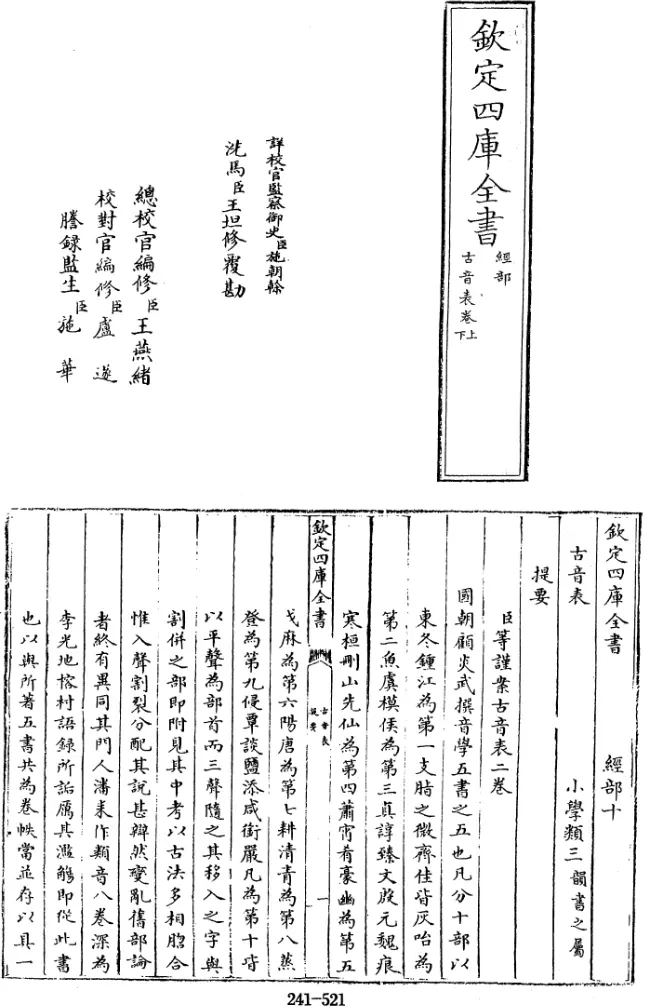 欽定四庫全書
經部
古音表卷上下
詳校官監察御史臣施朝榦
洗馬臣王坦修覆勘
總校官編修臣王燕緒
校對官編修臣盧遂
謄録監生臣施華
欽定四庫全書 經部十
古音表 小學類三韻書之屬
提要
臣等謹案古音表二卷
國朝顧炎武撰音學五書之五也凡分十部以
東冬鍾江為第一支脂之微齊佳皆灰咍為
第二魚虞模侯為第三真諄臻文殷元魂痕
寒桓刪山先仙為第四蕭宵肴豪幽為第五
欽定四庫全書
古音表
提要
一
戈麻為第六陽唐為第七耕清青為第八蒸
登為第九侵覃談鹽添咸銜嚴凡為第十皆
以平聲為部首而三聲隨之其移入之字與
割併之部即附見其中考以古法多相脗合
惟入聲割裂分配其說甚辯然變亂舊部論
者終有異同其門人潘耒作類音八卷深為
李光地榕村語録所詬厲其濫觴即從此書
也以與所著五書共為卷帙當並存以具一
241-521